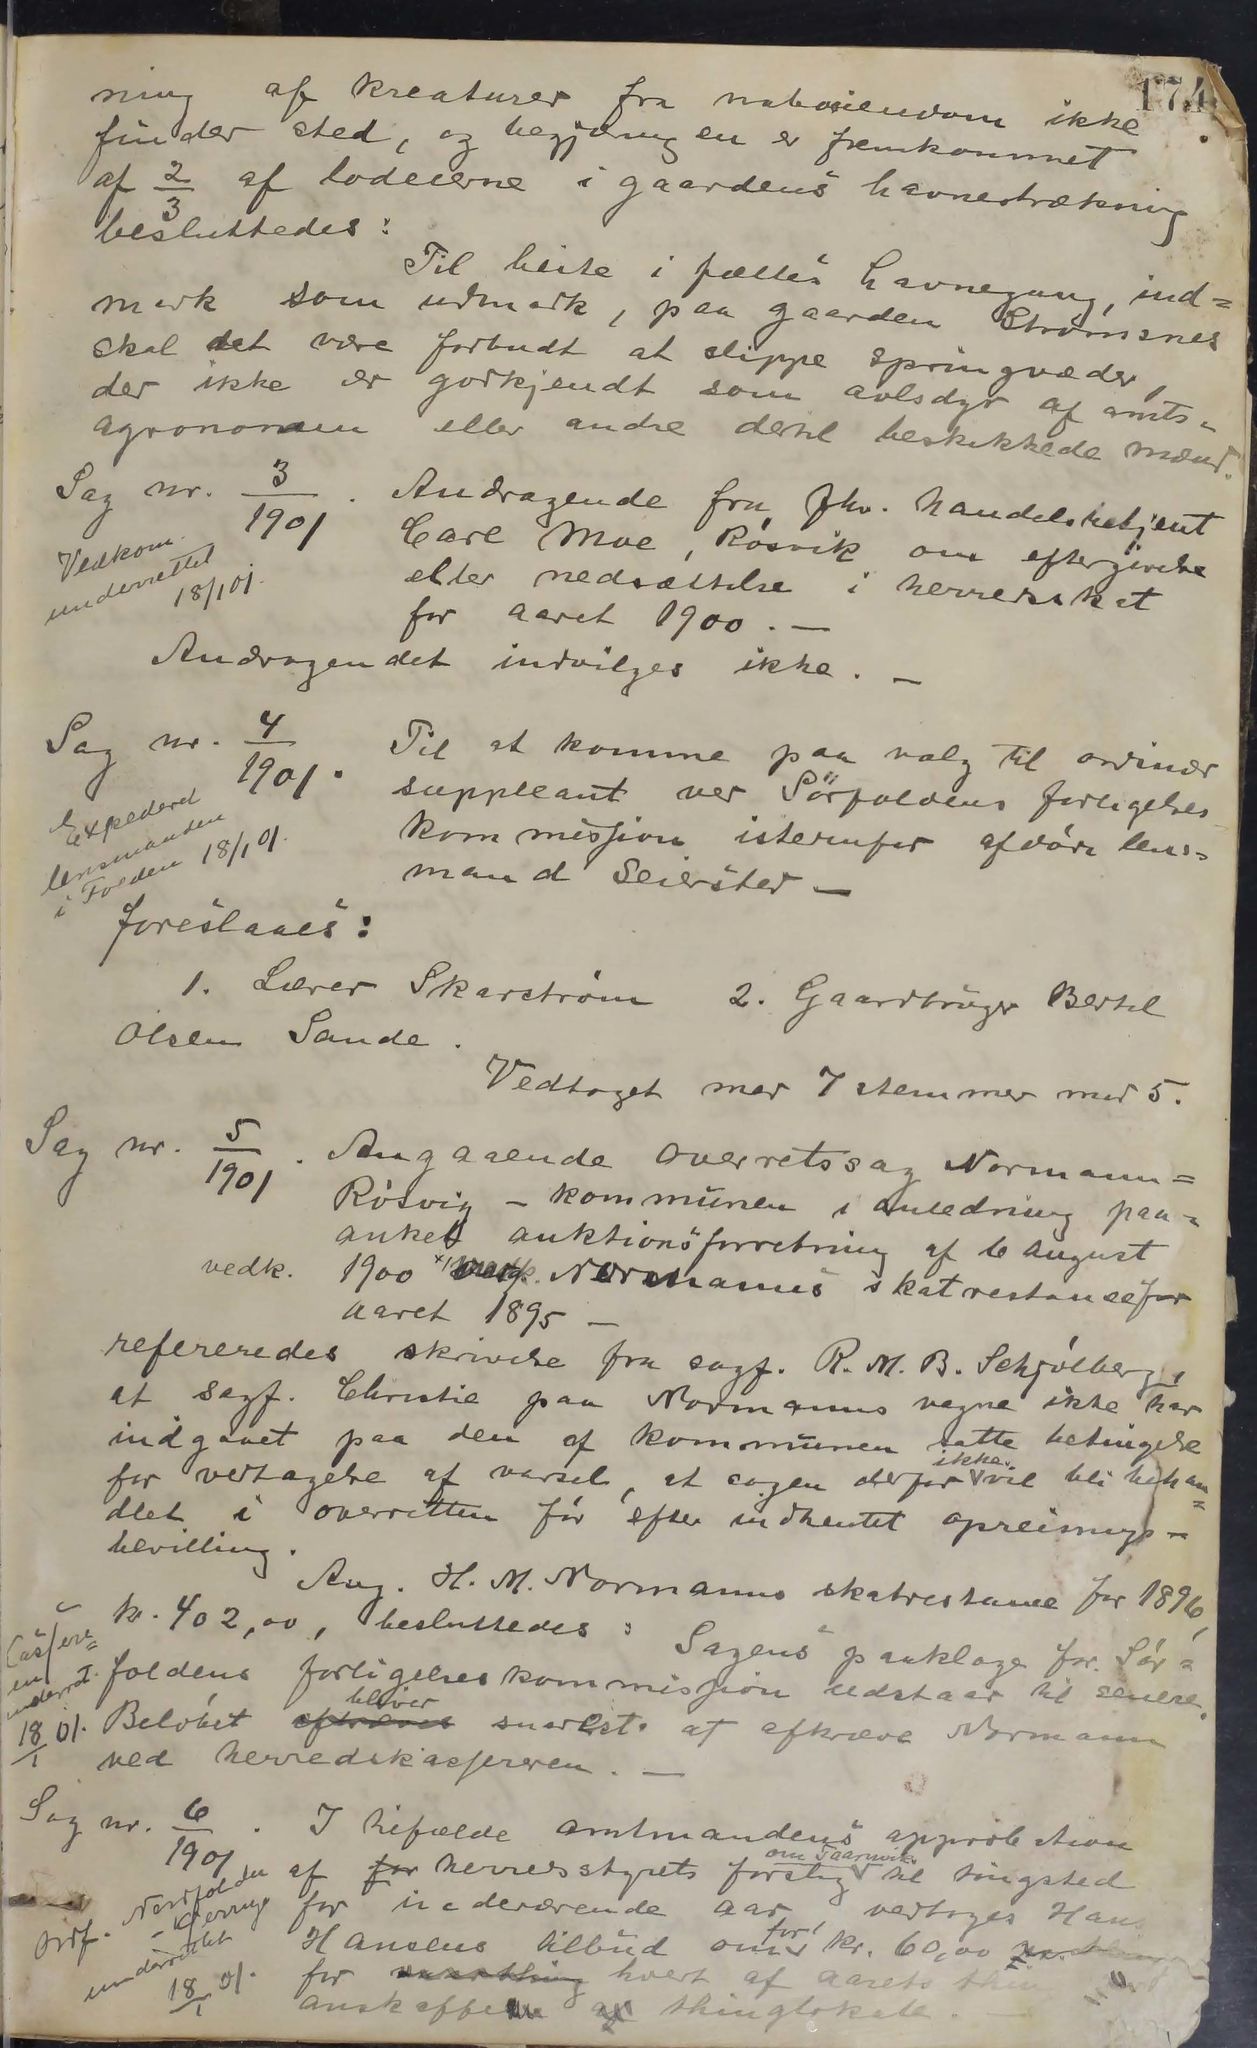 174
ning af kreaturer fra naboeiendom ikke
finder sted, og begjæringen er fremkommet
af 2/3 af lodeierne i gaardens havnestrækning
besluttedes:
Til beite i fælles havnegang, ind=
mark som udmark, paa gaarden Strømsnes
skal det være forbudt at slippe springvæder,
der ikke er godkjendt som avlsdyr af amts-
agronomen eller andre dertil beskikkede mænd.
Sag nr. 3/1901. Andragende fra fhv. handelsbetjent
Carl Moe, Røsvik om eftergivelse
eller nedsættelse i herredsskat
for aaret 1900. —
Vedkom.
underrettet
18/1 01.
Andragendet indvilges ikke. —
Sag nr. 4/1901. Til at komme paa valg til ordinær
suppleant ved Sørfoldens forligelses
kommission istedenfor afdøde lens=
mand Seiersted —
Expederd
lensmanden
i Folden 18/1 01.
foreslaaes:
1. Lærer Skarstrøm 2. Gaardbruger Bertel
Olsen Sande.
Vedtaget med 7 stemmer mod 5.
Sag nr. 5/1901. Angaaende overretssag Normann=
Røsvig - kommunen i anledning paa=
anket auktionsforretning af 6 august
vedk. 1900 Normanns skatrestance for
aaret 1895 —
refereredes skrivelse fra sagf. R. M. B. Schjølberg,
at sagf. Christie paa Normanns vegne ikke har
indgaaet paa den af kommunen satte betingelse
for vedtagelse af varsel, at sagen derfor ikke vil bli behan=
dlet i overretten før efter indhentet opreisnings-
bevilling.
Ang. H. M. Normanns skatrestance for 1896,
kr. 402,00, besluttedes: Sagens paaklage for Sør=
foldens forligelseskommission udstaar til senere.
Beløbet afkræves bliver snarest at afkræve Normann
ved herredskassereren. —
Casserer=
en
underret.
18/1 01.
Sag nr. 6/1901. I tilfælde amtmandens approbation
af for herredsstyrets forslag om Taarnvik til tingsted
for inderværende aar vedtoges Hans
Hansens tilbud om for kr. 60,00
for hvert af aarets
anskaffe thinglokale. —
Ordf. Nordfolden
- Kjerringø
underrettet
18/1 01.